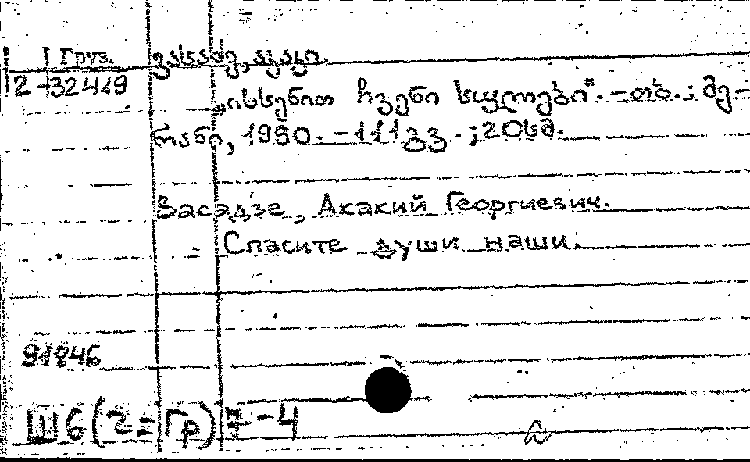 1 Груз. ვასაძე, აკაკი.
2-32419
„იხსენით ჩვენი სულები“. – თბ.: მე-
რანი, 1990. – 111 გვ. ; 20 სმ.
Васадзе, Акакий Георгиевич.
Спасите души наши.
91246
Ш6(2=Гр)7-4